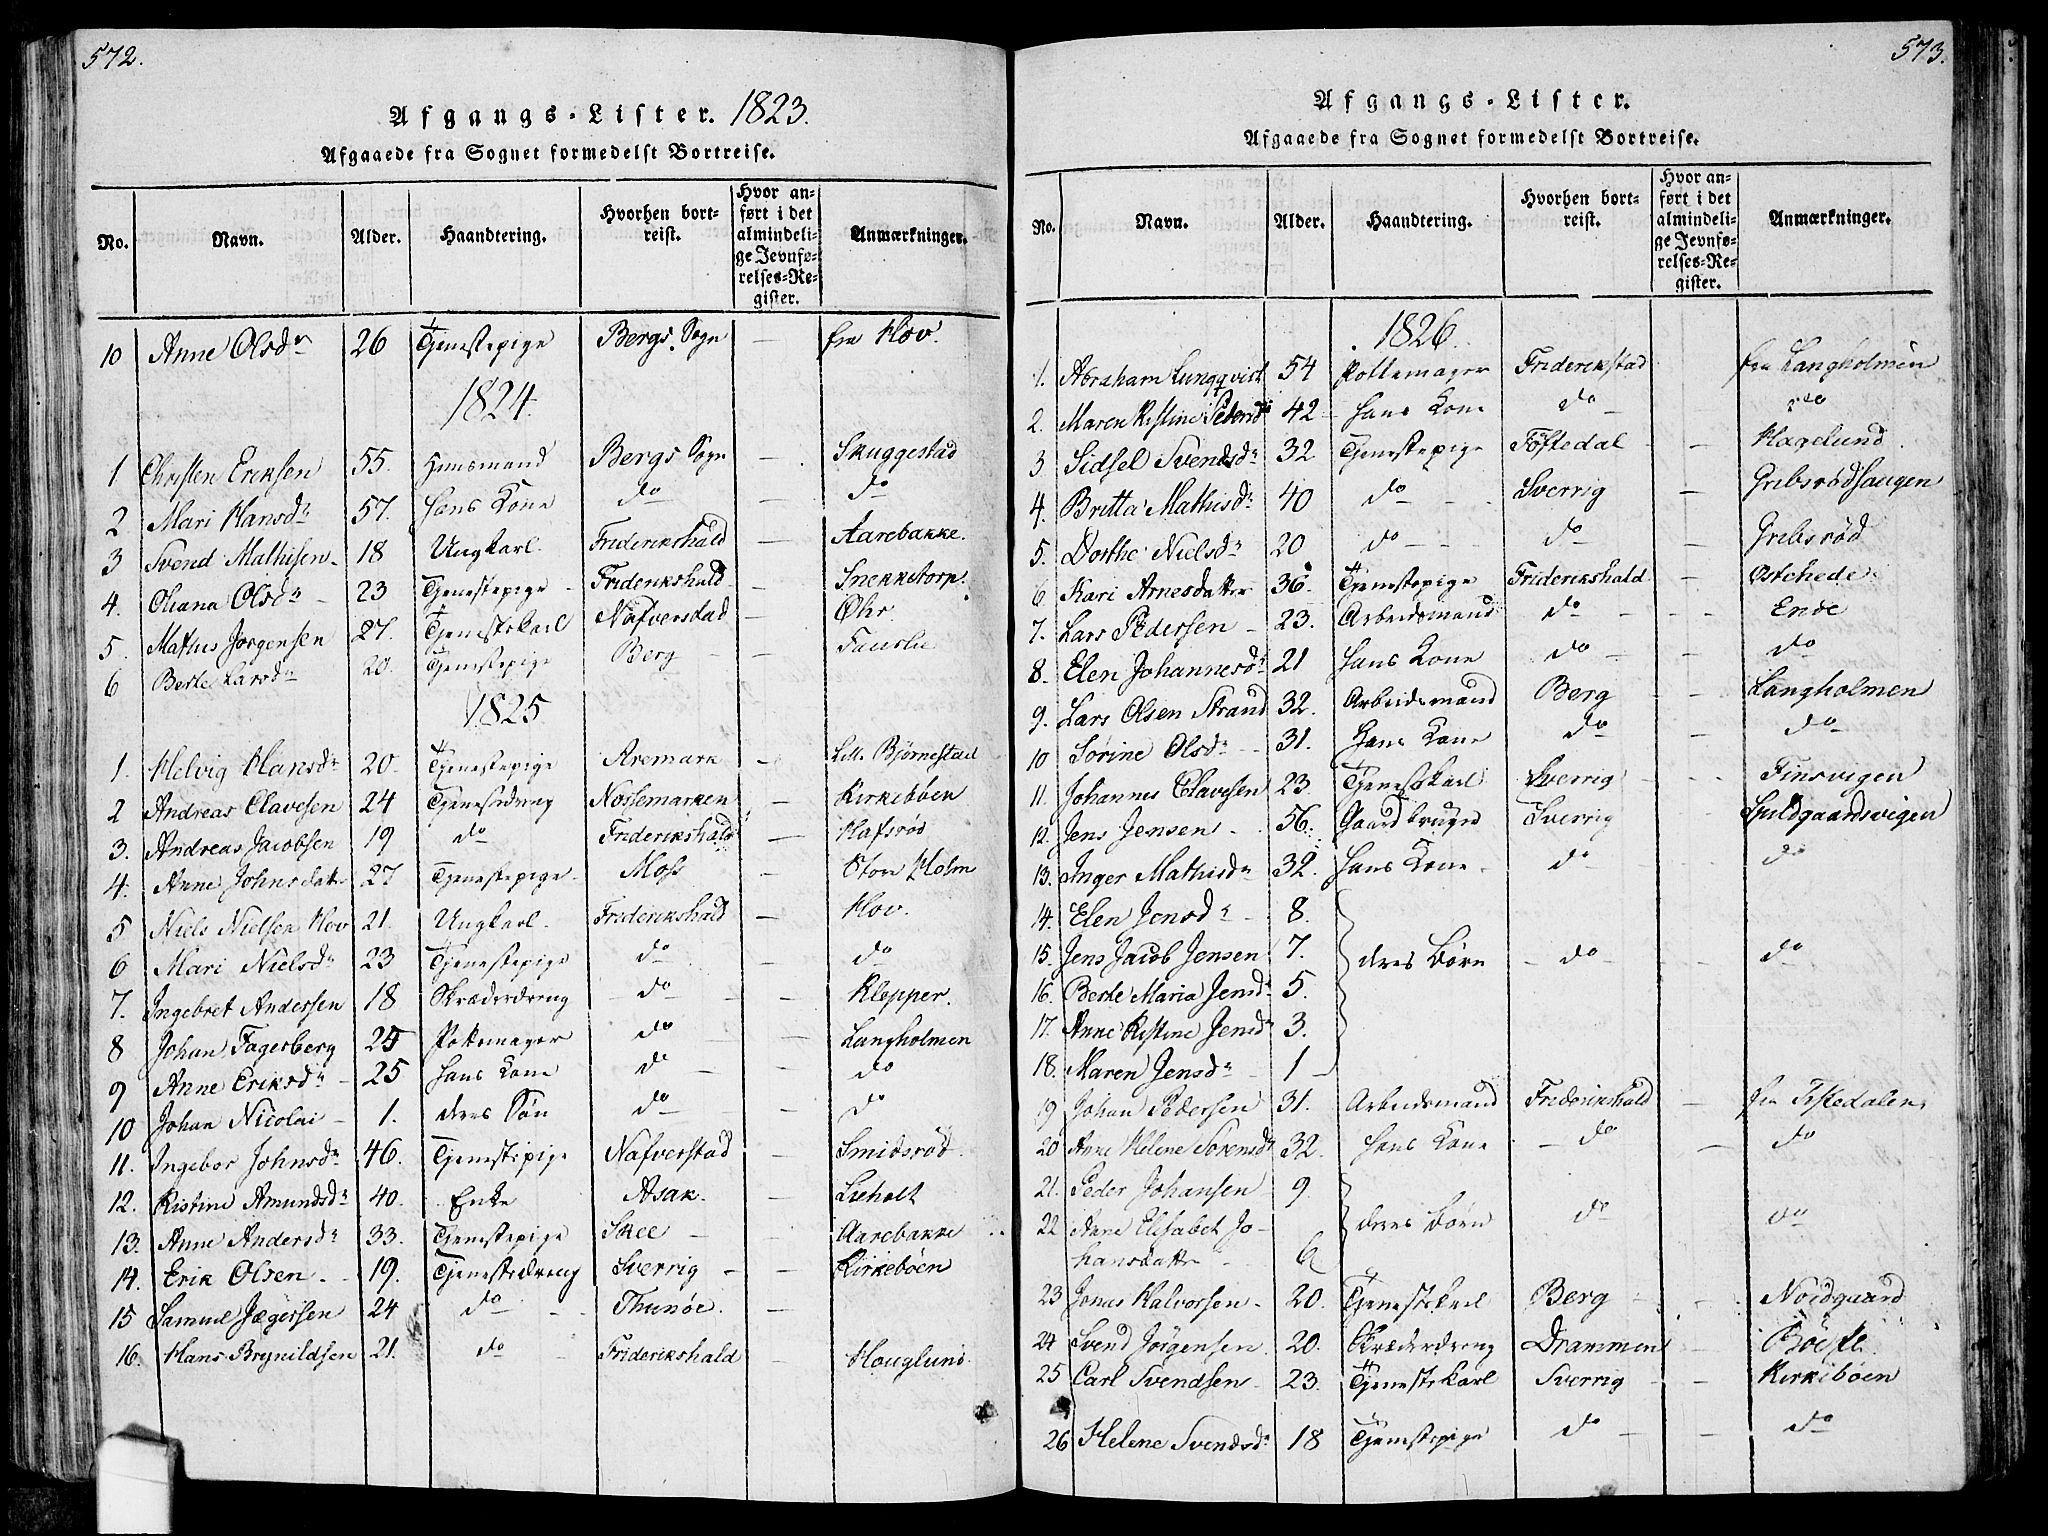 572.
Afgangs-Lister. 1823.
Afgaaede fra Sognet formedelst Bortreise.
No. Navn. Alder. Haandtering. Hvorhen bortreist. Hvor anført i det almindelige Jevnførelses-Register. Anmærkninger.
10 Anne Olsdr 26 Tjenestepige Bergs Sogn — fra Hov.
1824.
1 Christen Eriksen 55. Huusmand Bergs Sogn — Skuggestad
2 Mari Hansdr 57. hans Kone do — do
3 Svend Mathisen 18 Ungkarl. Frederikshald — Aarebakke.
4. Oliana Olsdr 23 Tjenestepige Friderikshald — Snekketorp.
5. Mathis Jørgensen 27. Tjenestekarl Nafverstad — Øhr.
6 Berte Larsdr 20. Tjenestepige Berg —
1825
1. Helvig Hansdr 20. Tjenestepige Aremark — Lill. Bjørnestad
2 Andreas Olavesen 24 Tjenestedreng Nossemarken — Kirkebøen
3. Andreas Jacobsen 19 do Friderikshald — Hafsrød
4. Anne Johnsdatr 27 Tjenestepige Moss — Stor Holm
5 Niels Nielsen Hov 21. Ungkarl. Friderikshald — Hov.
6 Mari Nielsdr 23 Tjenestepige do — do
7. Ingebret Andersen 18 Skræderdreng do — Klepper.
8 Johan Fagerberg 25 Pottemager do — Langholmen
9 Anne Eriksdr 25 hans Kone do — do
10 Johan Nicolai 1. deres Søn do — do
11. Ingebor Johnsdr 46. Tjenestepige Nafverstad — Smidsrød.
12. Kistine Amundsdr 40. Enke Asak. — Lieholt
13. Anne Andersdr 33. Tjenestepige Skee — Aarebakke
14. Erik Olsen 19. Tjenestedreng Sverrig — Kirkebøen
15 Samuel Jægersen 24 do Thunøe. —
16. Hans Brynildsen 21. do Friderikshald — Houglund.
573.
Afgangs-Lister.
Afgaaede fra Sognet formedelst Bortreise.
No. Navn. Alder. Haandtering. Hvorhen bortreist. Hvor anført i det almindelige Jevnførelses-Register. Anmærkninger.
1826.
1. Abraham Lungqvist 54 Pottemager Friderikstad fra Langholmen
2. Maren Kistine Pedersdr 42 hans Kone do do
3 Sidsel Svendsdr 32 Tjenestepige Töftedal — Hagelund.
4. Britta Mathisdr 40 do Sverrig — Gribsrødhaugen
5. Dorthe Nielsdr 20 do do Gribsrød
6 Kari Arnesdatter 36. Tjenestepige Friderikshald —
7. Lars Pedersen 23. Arbeidsmand do — Ende
8. Elen Johannesdr 21 hans Kone do — do
9. Lars Olsen Strand 32. Arbeidsmand Berg — Langholmen
10 Sørine Olsdr 31. hans Kone do do
11. Johannes Olavesen 23. Tjenestekarl Sverrig — Finsvigen
12. Jens Jensen 56. Gaardbruger Sverrig Guldgaardsvigen
13. Inger Mathisdr 32. hans Kone do do
14. Elen Jensdr 8.
15. Jens Jacob Jensen 7. deres Børn do — do
16. Berte Maria Jensdr 5.
17. Anne Kistine Jensdr 3.
18. Maren Jensdr 1
19 Johan Pedersen 31. Arbeidsmand Friderikshald — fra Tistedalen
20 Anne Helene Sorensdr 32. hans Kone do — do
21. Peder Johansen 9.
22 Anne Elisabet Jo- deres Børn do do
hansdatter 6
23 Jonas Halvorsen 20. Tjenestekarl Berg — Nordgaard
24 Svend Jörgensen 20. Skræderdreng Drammen
25 Carl Svendsen 23. Tjenestekarl Sverrig — Kirkebøen
26 Helene Svendsdr 18 Tjenestepige do — do